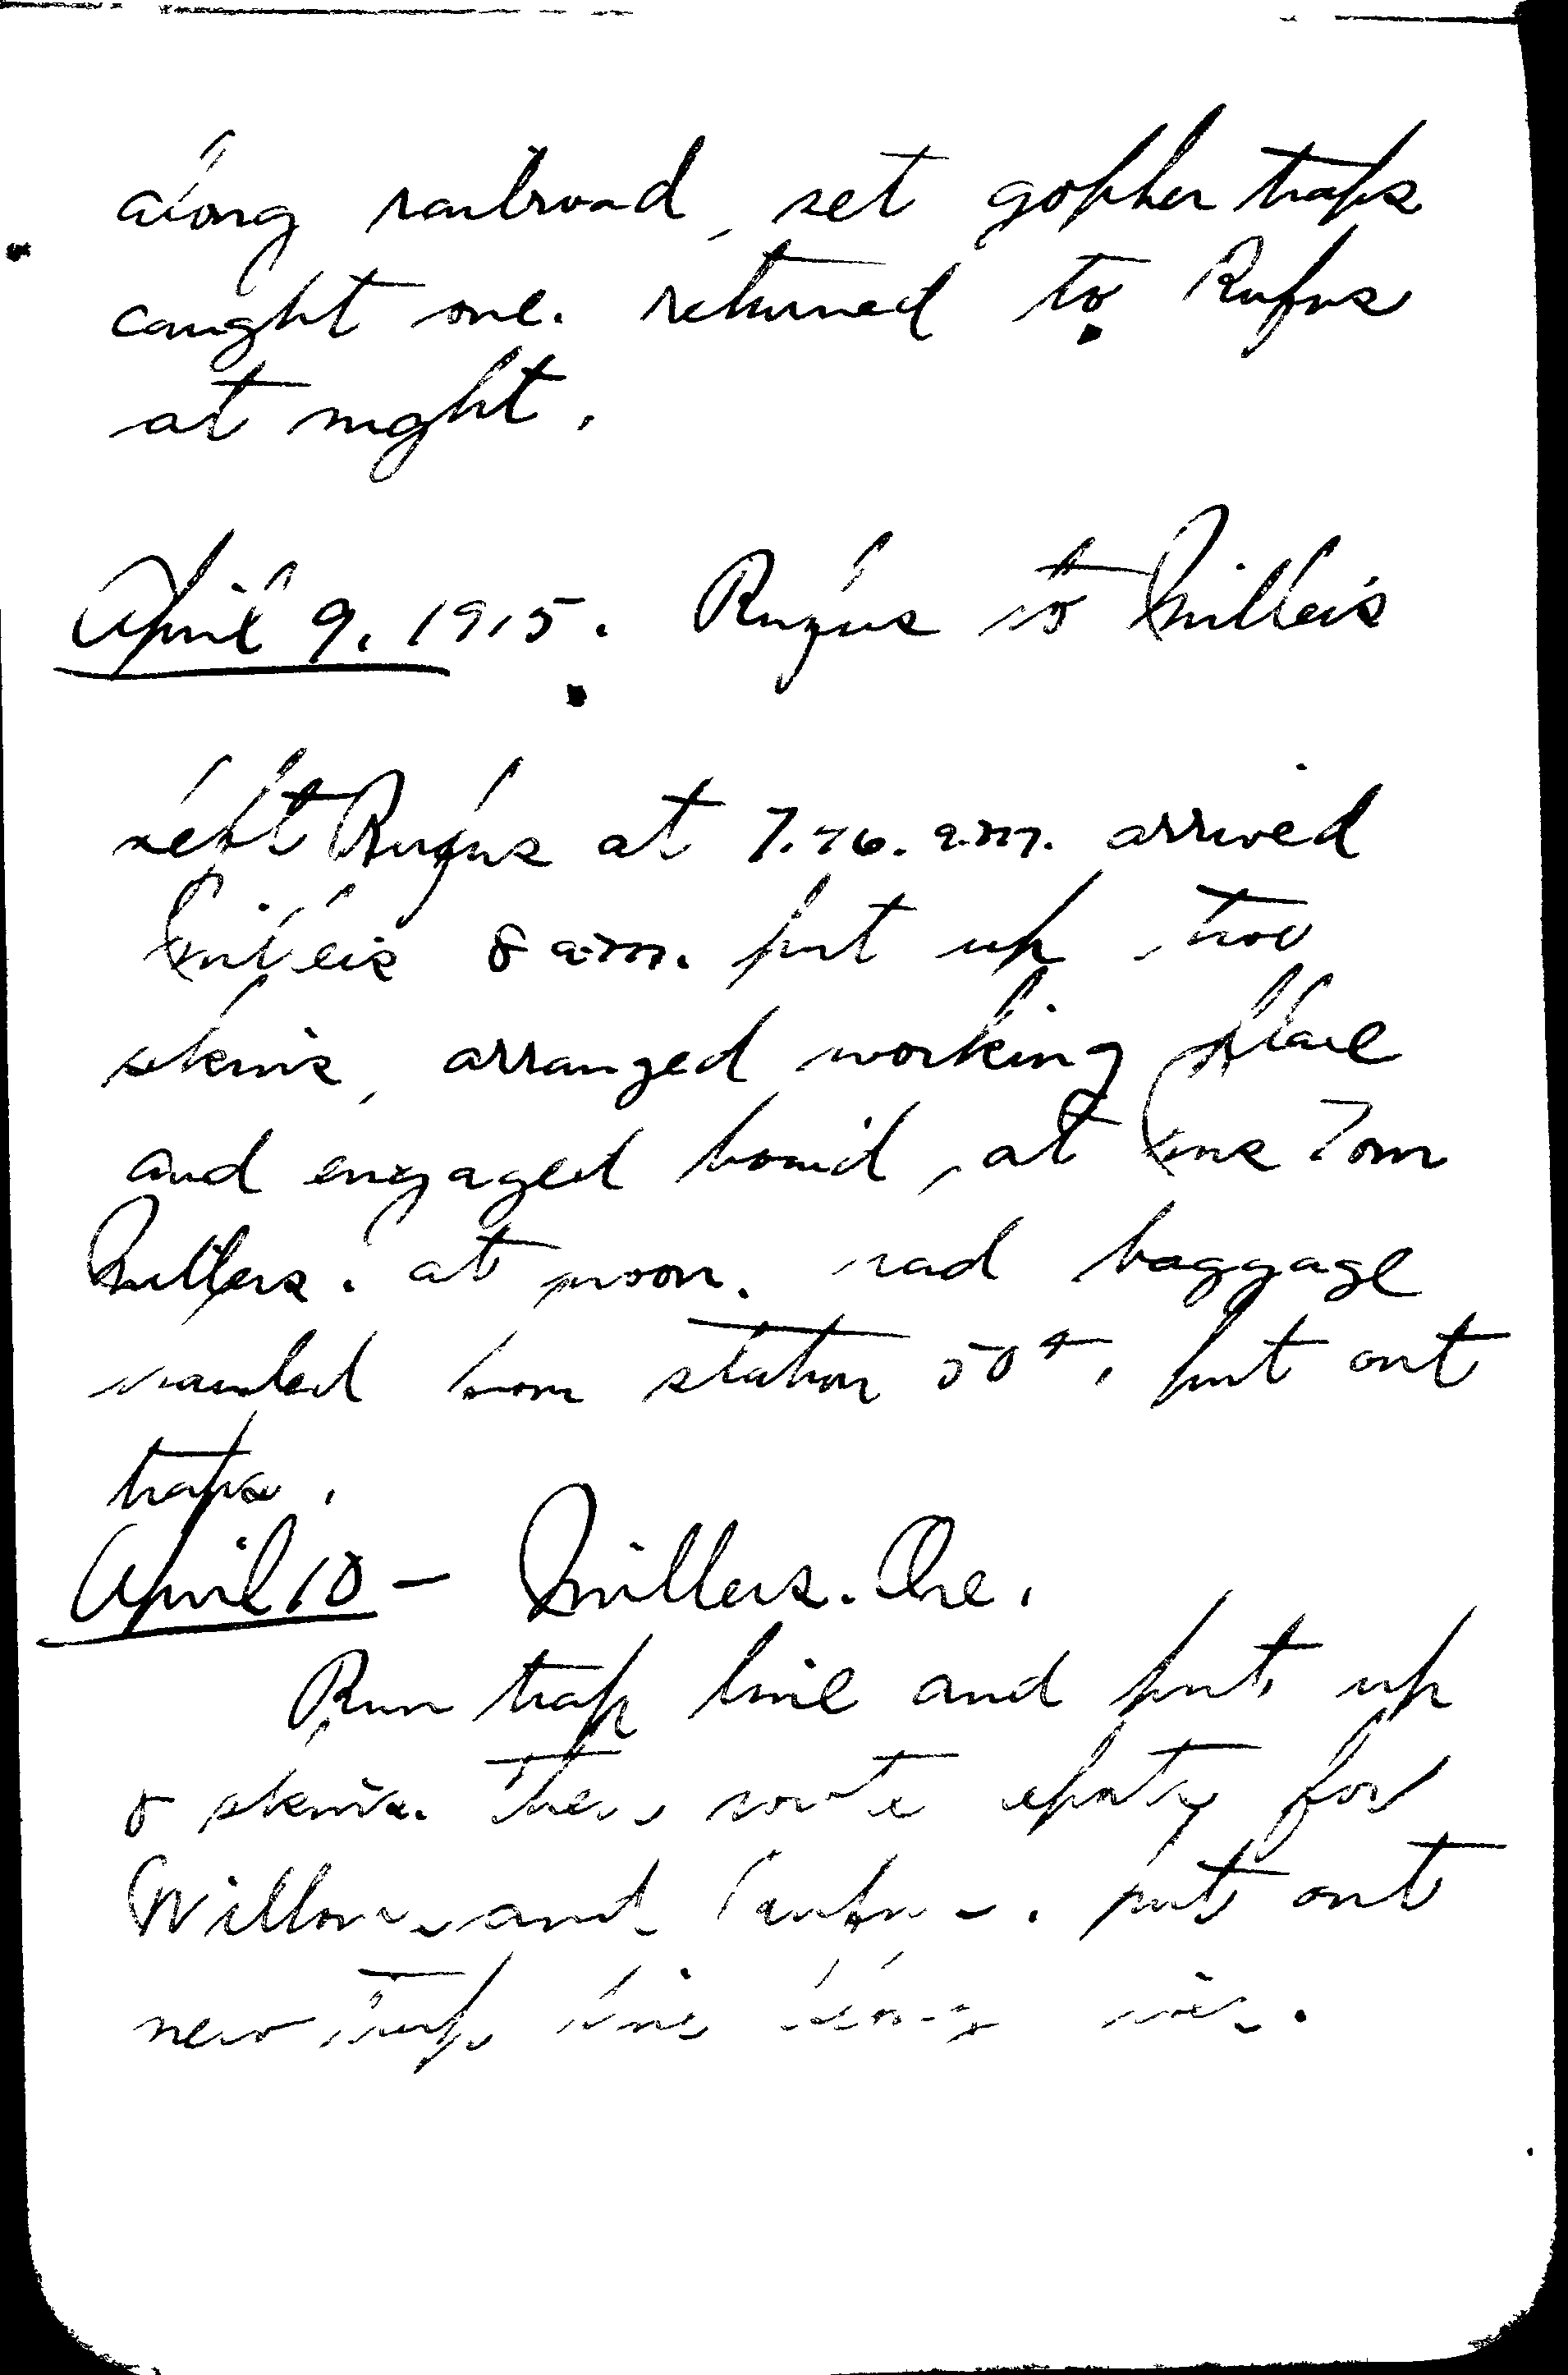 along railroad, set gopher traps
caught one. returned to Rufus
at night.
April 9, 1915. Rufus to Millers
Left Rufus at 7.46. a.m. arrived
Millers 8 a.m. put up two
skins, arranged working place
and engaged board, at Mrs Tom
Millers. at noon. had baggage
hauled from station 50¢, put out
traps.
April 10 - Millers. Ore.
Run trap line and put up
8 skins. Then wrote for
Willow and put out
new trap line along river.